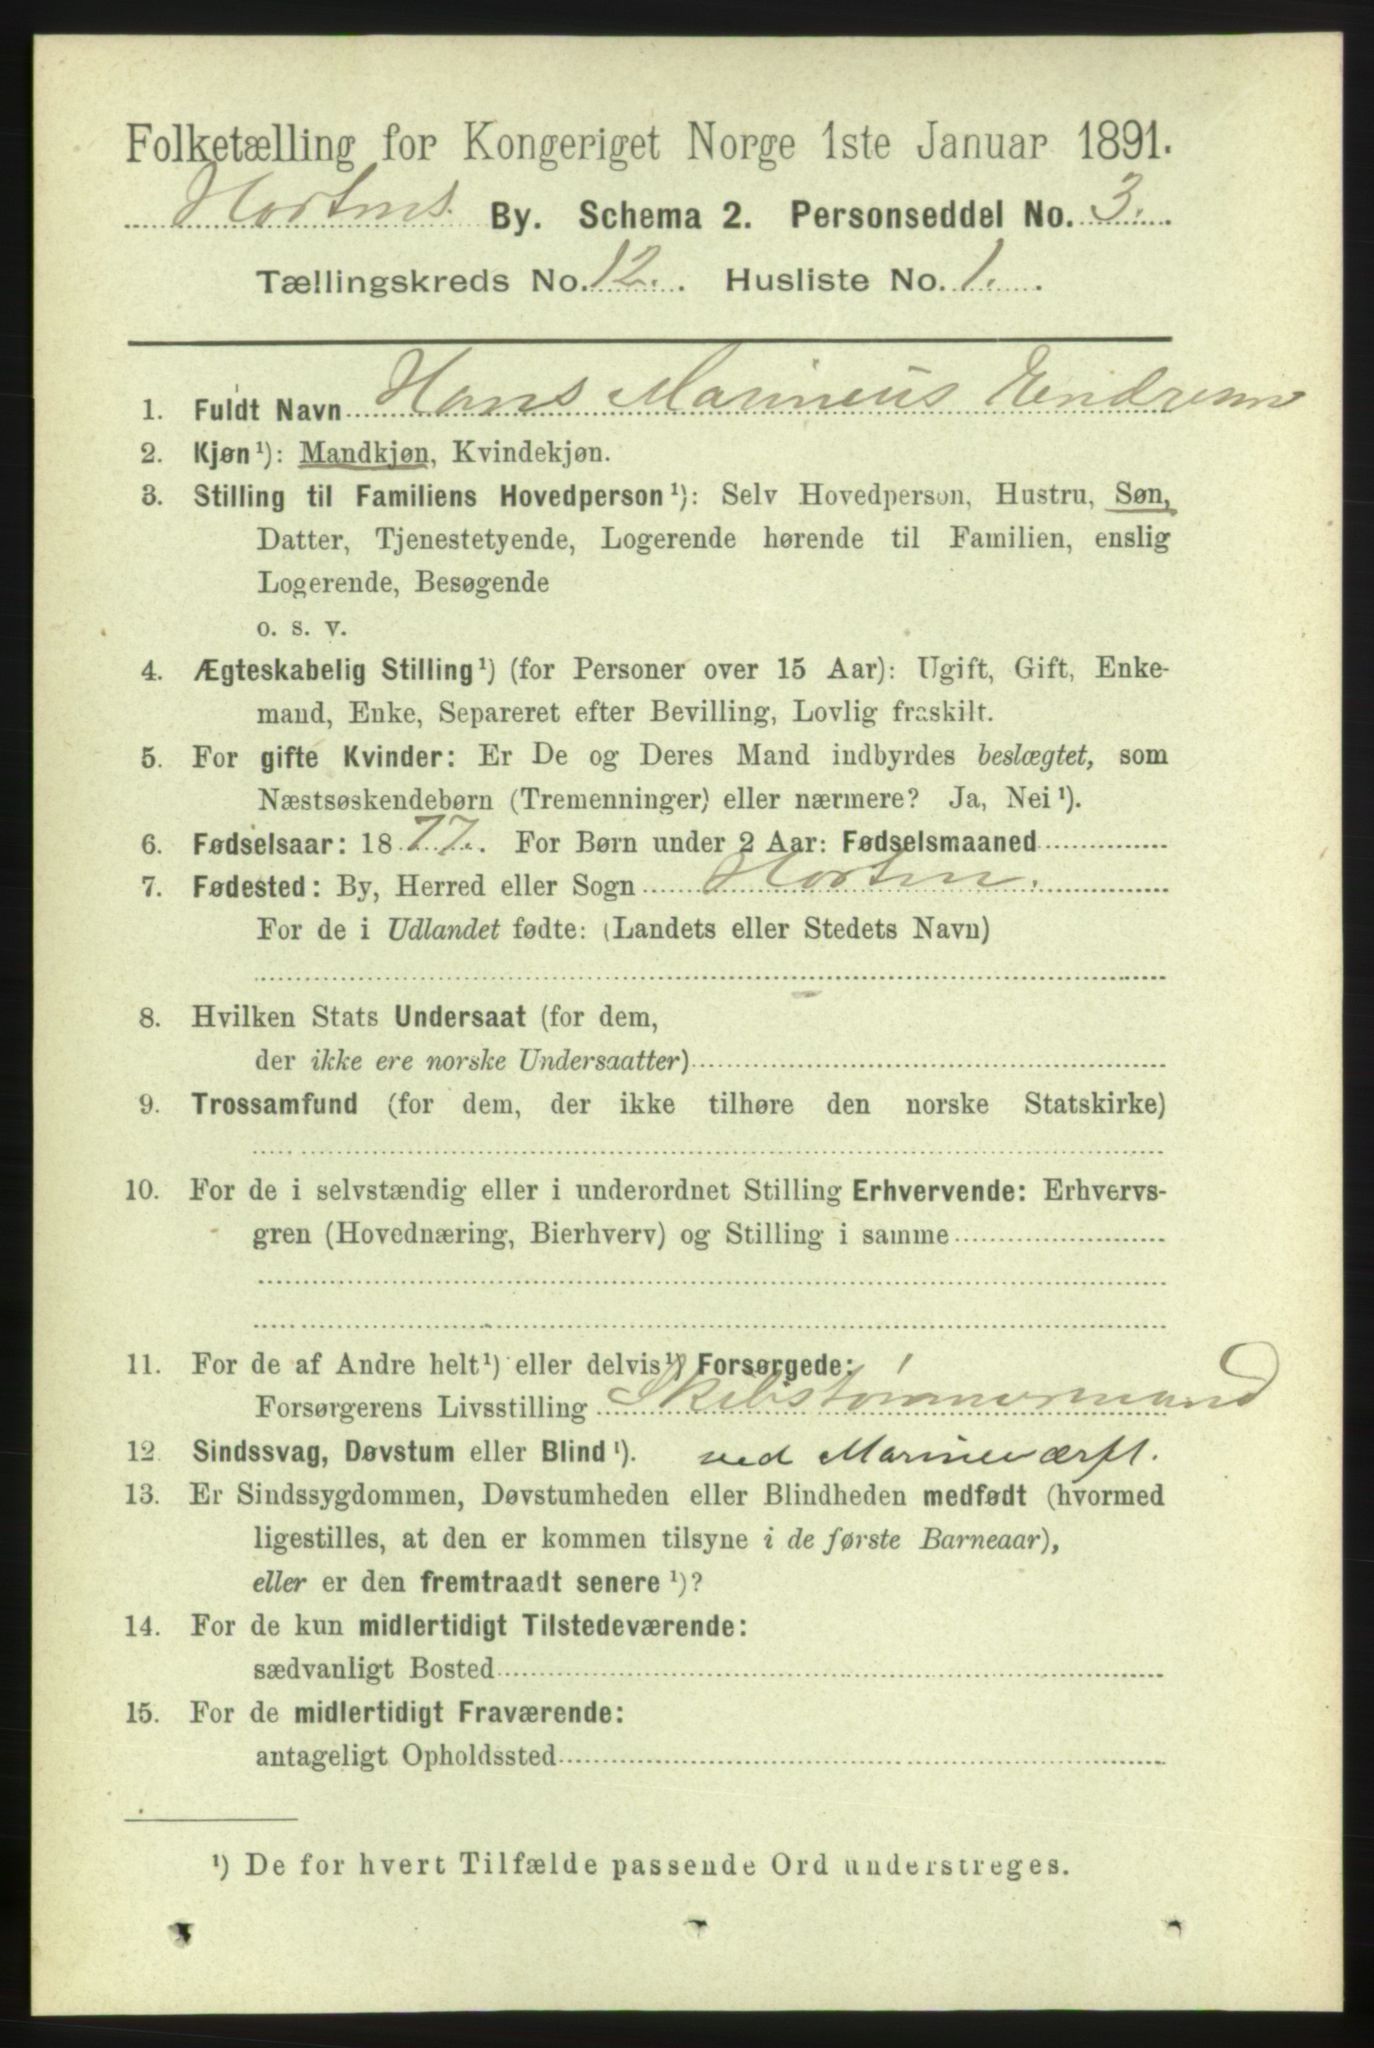 Folketælling for Kongeriget Norge 1ste Januar 1891.
Hortens By. Schema 2. Personseddel No. 3.
Tællingskreds No. 12. Husliste No. 1.
1. Fuldt Navn Hans Marineus Eendresen
2. Kjøn¹): Mandkjøn, Kvindekjøn.
3. Stilling til Familiens Hovedperson¹): Selv Hovedperson, Hustru, Søn,
Datter, Tjenestetyende, Logerende hørende til Familien, enslig
Logerende, Besøgende
o. s. v.
4. Ægteskabelig Stilling¹) (for Personer over 15 Aar): Ugift, Gift, Enke-
mand, Enke, Separeret efter Bevilling, Lovlig fraskilt.
5. For gifte Kvinder: Er De og Deres Mand indbyrdes beslægtet, som
Næstsøskendebørn (Tremenninger) eller nærmere? Ja, Nei¹).
6. Fødselsaar: 1877. For Børn under 2 Aar: Fødselsmaaned
7. Fødested: By, Herred eller Sogn Horten.
For de i Udlandet fødte: (Landets eller Stedets Navn)
8. Hvilken Stats Undersaat (for dem,
der ikke ere norske Undersaatter)
9. Trossamfund (for dem, der ikke tilhøre den norske Statskirke)
10. For de i selvstændig eller i underordnet Stilling Erhvervende: Erhvervs-
gren (Hovednæring, Bierhverv) og Stilling i samme
11. For de af Andre helt¹) eller delvis¹) Forsørgede:
Forsørgerens Livsstilling Skibstømmermand
12. Sindssvag, Døvstum eller Blind¹). ved Marineværft.
13. Er Sindssygdommen, Døvstumheden eller Blindheden medfødt (hvormed
ligestilles, at den er kommen tilsyne i de første Barneaar),
eller er den fremtraadt senere¹)?
14. For de kun midlertidigt Tilstedeværende:
sædvanligt Bosted
15. For de midlertidigt Fraværende:
antageligt Opholdssted
¹) De for hvert Tilfælde passende Ord understreges.